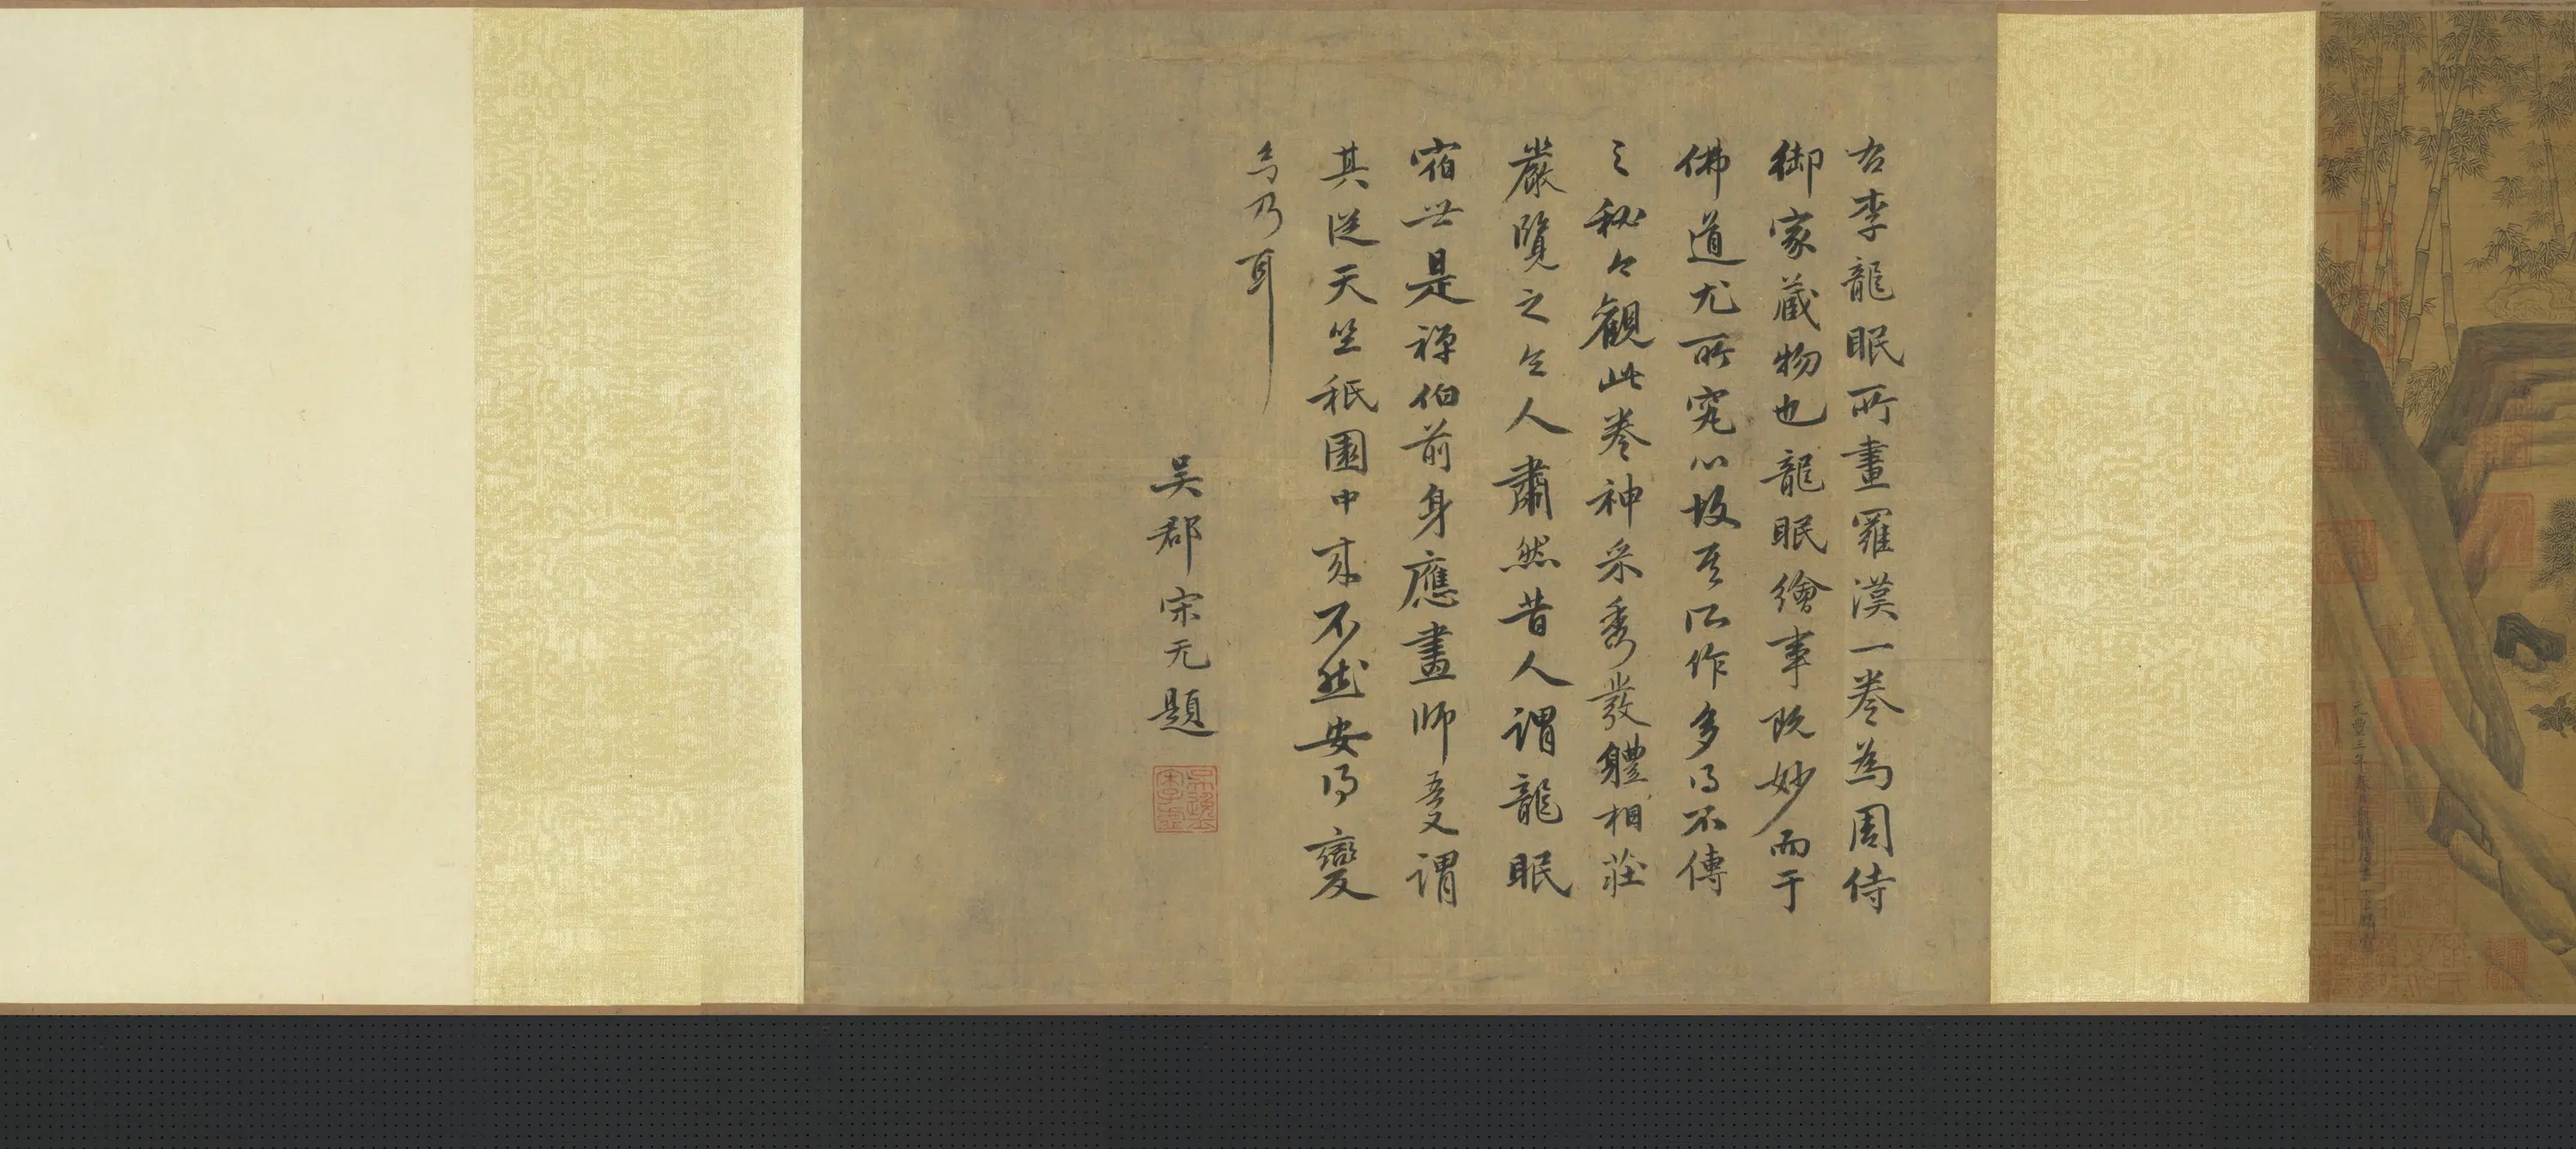 右李龍眠所畫羅漢一卷為周侍
御家藏物也龍眠繪事既妙而于
佛道尤所究心故其所作多得不傳
之秘今觀此卷神采秀發體相莊
嚴覽之令人肅然昔人謂龍眠
宿世是禪伯前身應畫師吾又謂
其從天竺秖園中來不然安得變
至乃耳
吳郡宋无題
元豐三年